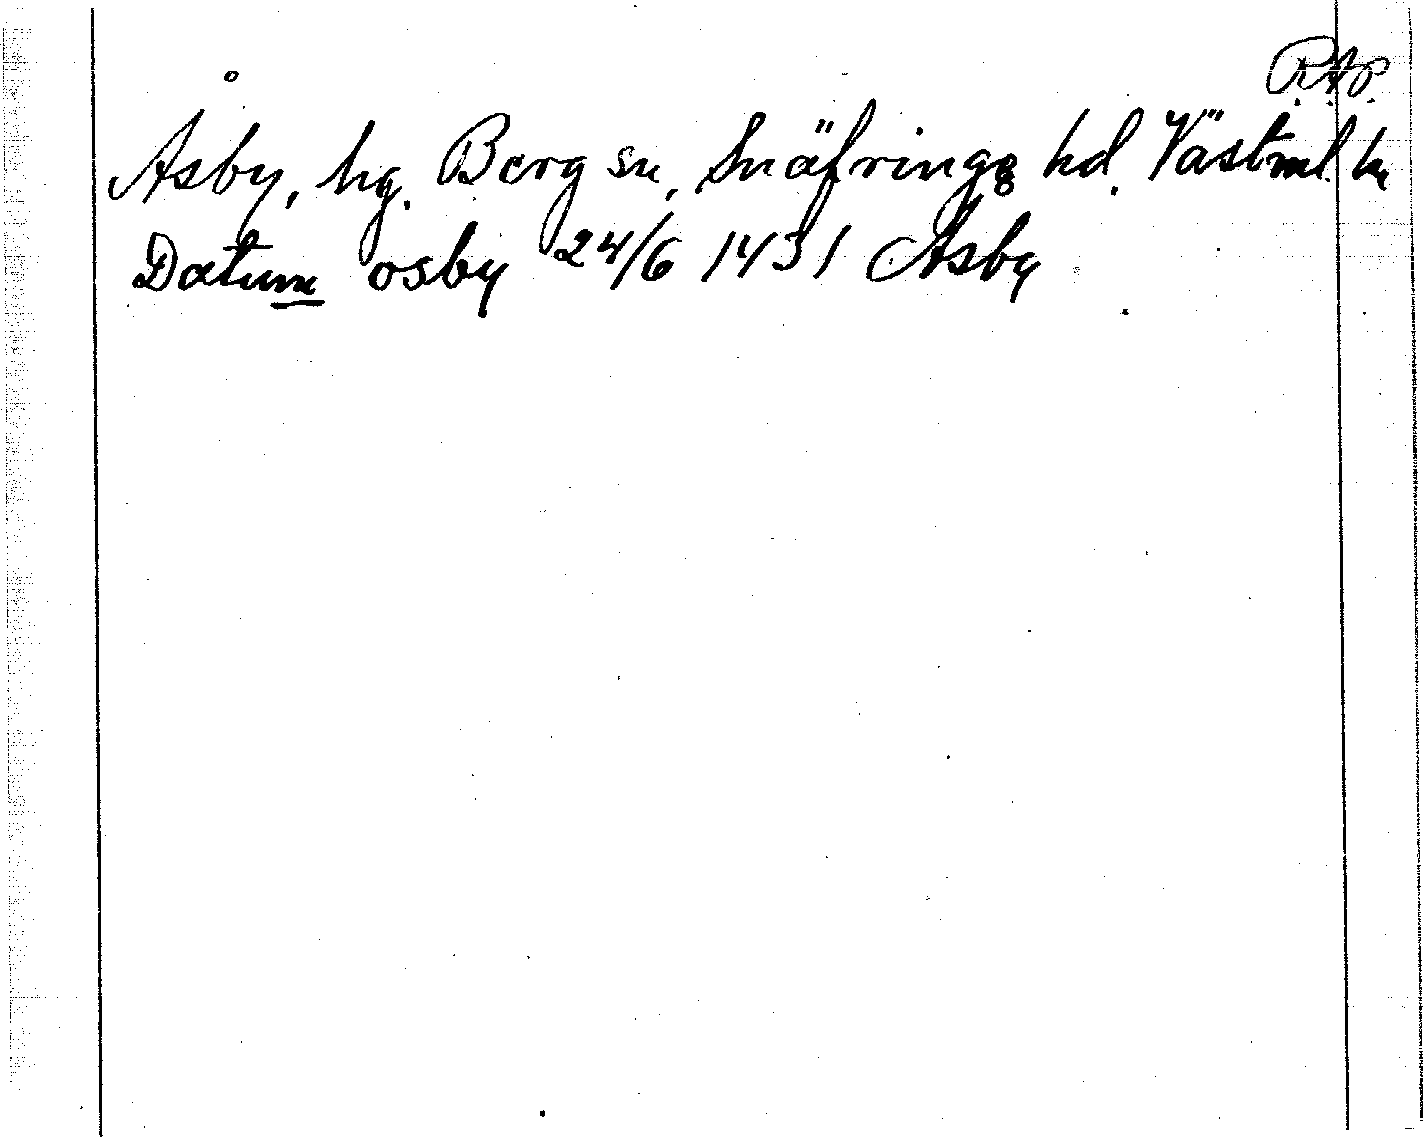 R.A.P.
Åsby, hg. Berg sn, Snäfringe hd. Västml. ln
Datum osby 24/6 1431 Åsby